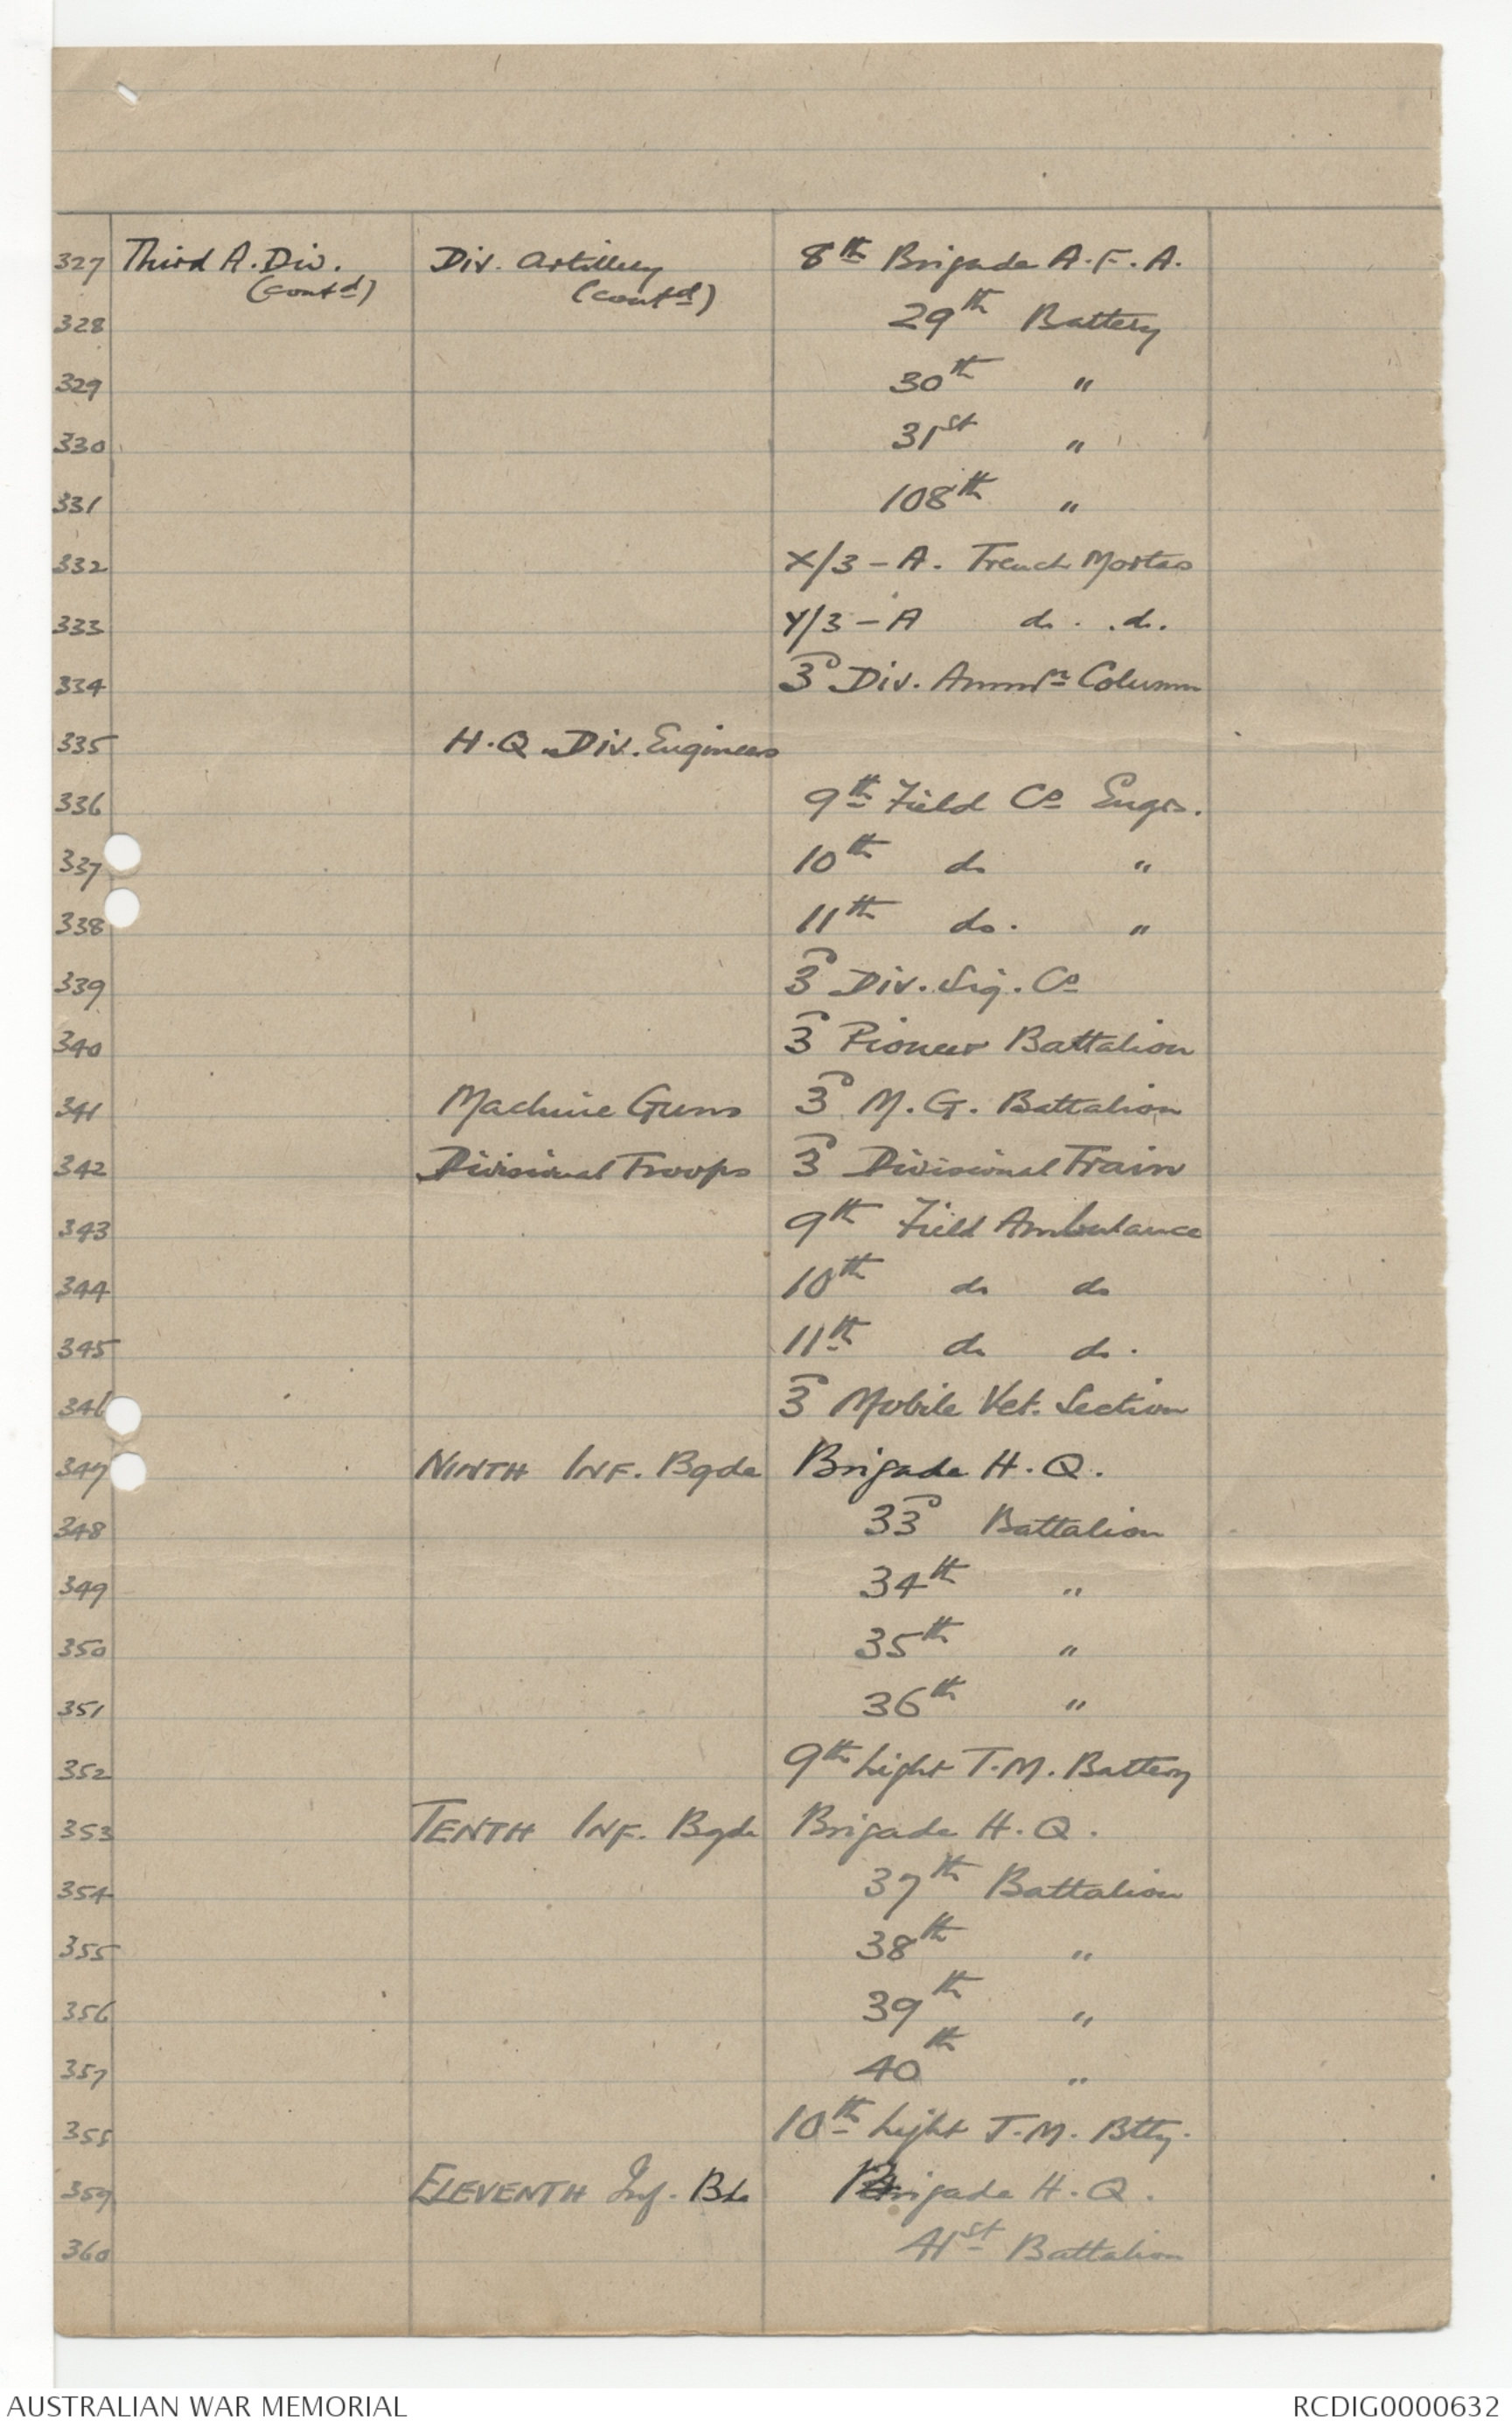 327 Third A. Div. Div. Artillery 8th Brigade A.F.A.
(contd) (contd)
328 29th Battery
329 30th "
330 31st "
331 108th "
332 X/3 - A. Trench Mortars
333 Y/3 - A do. do.
334 3rd Div. Ammn Column
335 H.Q. Div. Engineers
336 9th Field Co Engrs.
337 10th do "
338 11th do. "
339 3rd Div. Sig. Co
340 3rd Pioneer Battalion
341 Machine Guns 3rd M.G. Battalion
342 Divisional Troops 3rd Divisional Train
343 9th Field Ambulance
344 10th do do
345 11th do do.
346 3rd Mobile Vet. Section
347 NINTH INF. Bgde Brigade H.Q.
348 33rd Battalion
349 34th "
350 35th "
351 36th "
352 9th Light T.M. Battery
353 TENTH INF. Bgde Brigade H.Q.
354 37th Battalion
355 38th "
356 39th "
357 40th "
358 10th Light T.M. Btty.
359 ELEVENTH Inf. Bde Brigade H.Q.
360 41st Battalion
AUSTRALIAN WAR MEMORIAL RCDIG0000632